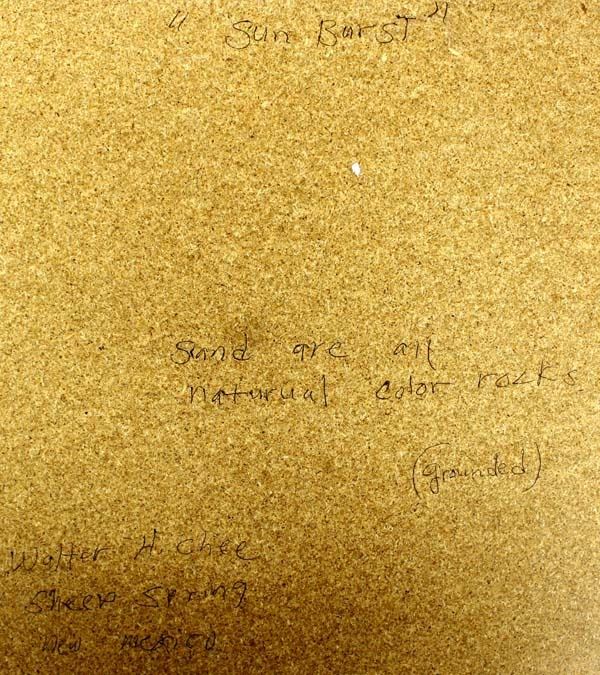 "Sun Burst"
Sand are all
naturual color rocks
(Grounded)
Walter H. Chee
Sheep Spring
New Mexico